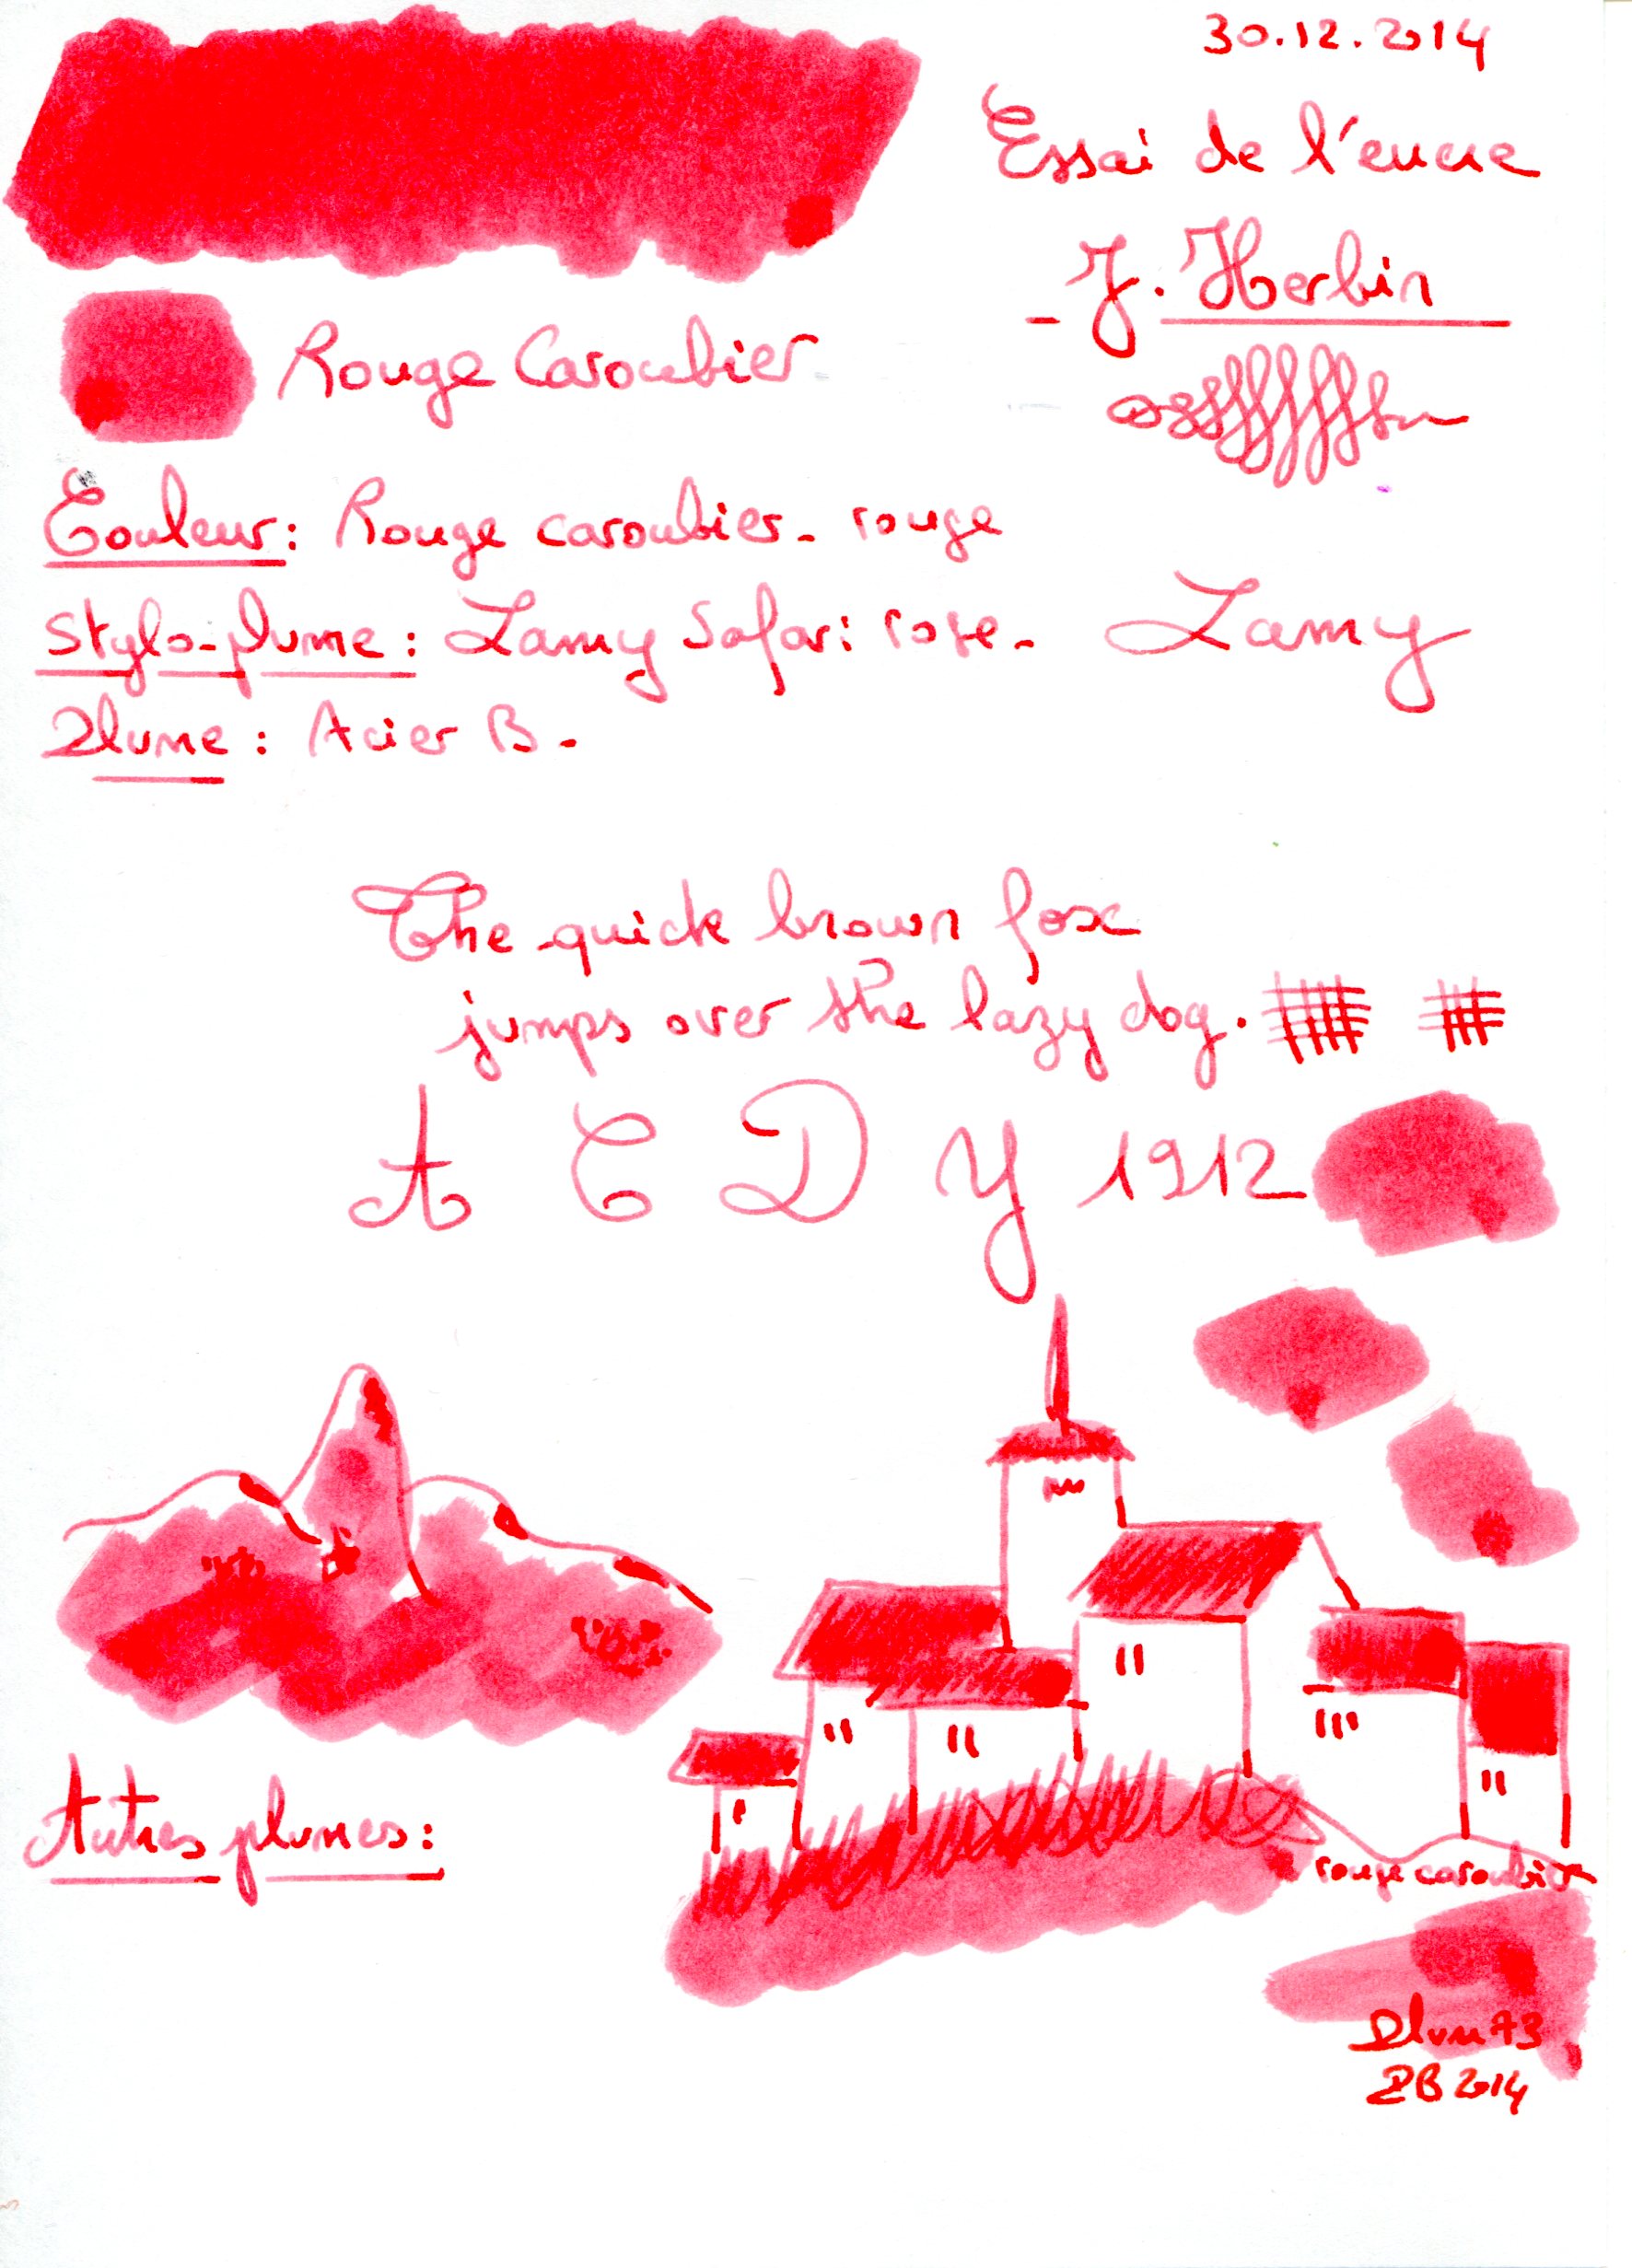 30.12.2014
Essai de l'encre
- J. Herbin
Rouge Caroubier
Couleur: Rouge caroubier - rouge
Stylo-plume: Lamy Safari rose - Lamy
Plume: Acier B -
The quick brown fox
jumps over the lazy dog.
A C D Y 1912
Autres plumes:
rouge caroubier
Plum73
PB 2014